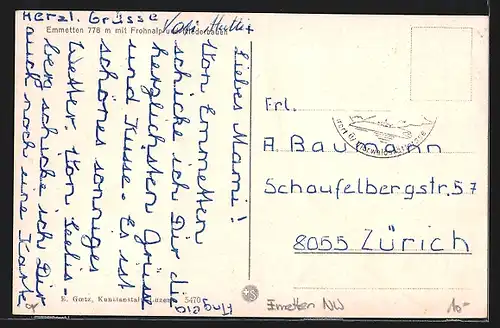 Herzl. Grüsse
Vati
Emmetten 778 m mit Frohnalp und Niederbauen
Liebes Mami!
Von Emmetten
schicke ich Dir die
herzlichsten Grüsse
und Küsse. Es ist
schönes sonniges
Wetter. Von Seelis-
berg schicke ich Dir
auch noch eine Karte
Angela
Frl.
A. Baumann
Schaufelbergstr. 57
8055 Zürich
E. Goetz, Kunstanstalt, Luzern 5470
Emetten NW
10.-